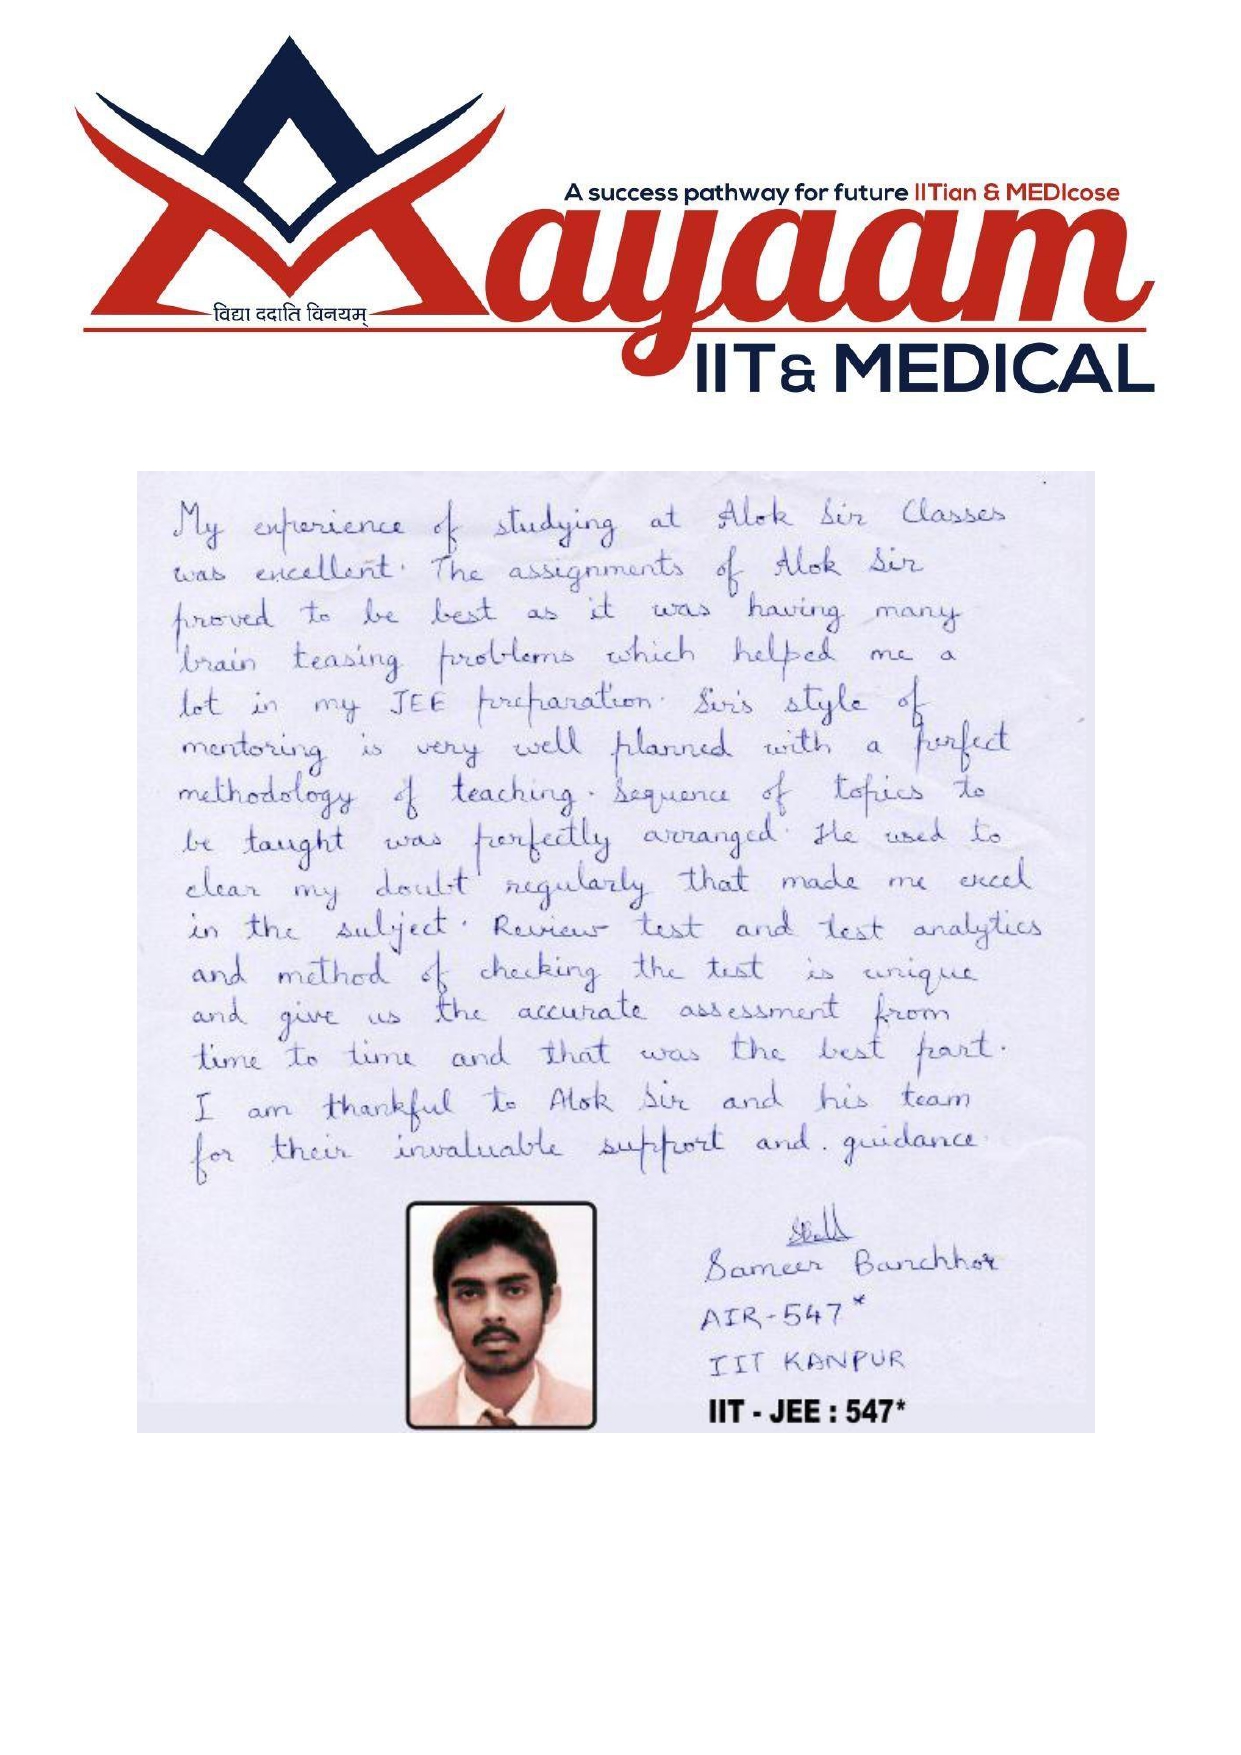 A success pathway for future IITian & MEDIcose
Mayaam
विद्या ददाति विनयम्
IIT & MEDICAL
My experience of studying at Alok Sir Classes
was excellent. The assignments of Alok Sir
proved to be best as it was having many
brain teasing problems which helped me a
lot in my JEE preparation. Sir's style of
mentoring is very well planned with a perfect
methodology of teaching. Sequence of topics to
be taught was perfectly arranged. He used to
clear my doubt regularly that made me excel
in the subject. Review test and test analytics
and method of checking the test is unique
and give us the accurate assessment from
time to time and that was the best part.
I am thankful to Alok Sir and his team
for their invaluable support and . guidance.
Sameer Banchhor
AIR-547*
IIT KANPUR
IIT - JEE : 547*